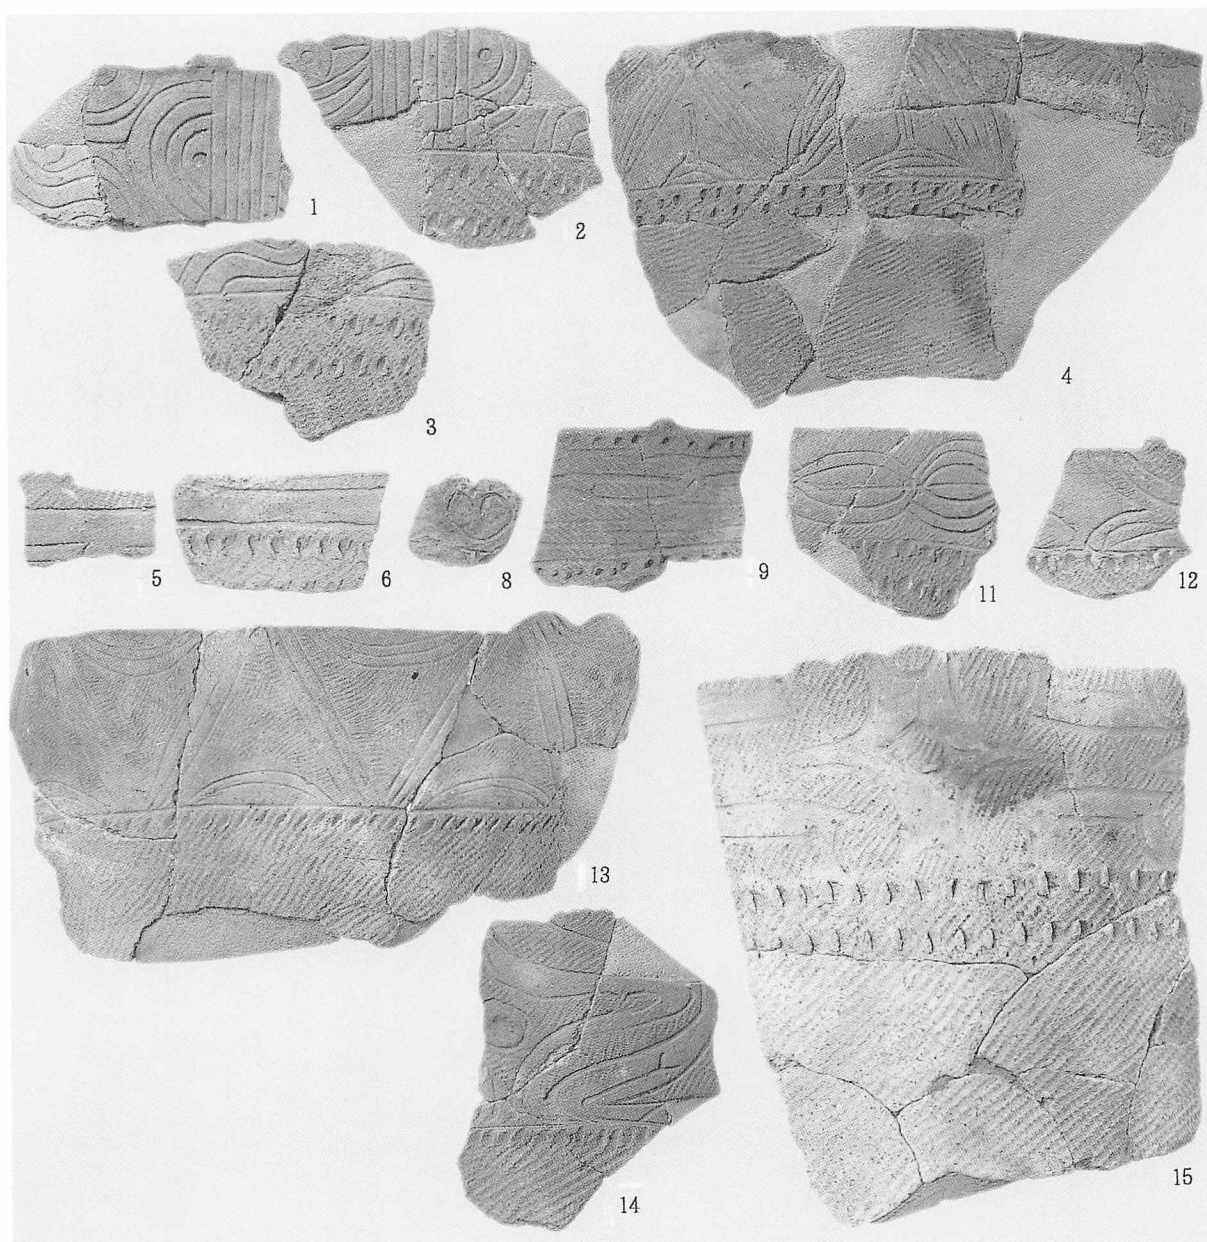 1
2
3
4
5
6
8
9
11
12
13
14
15